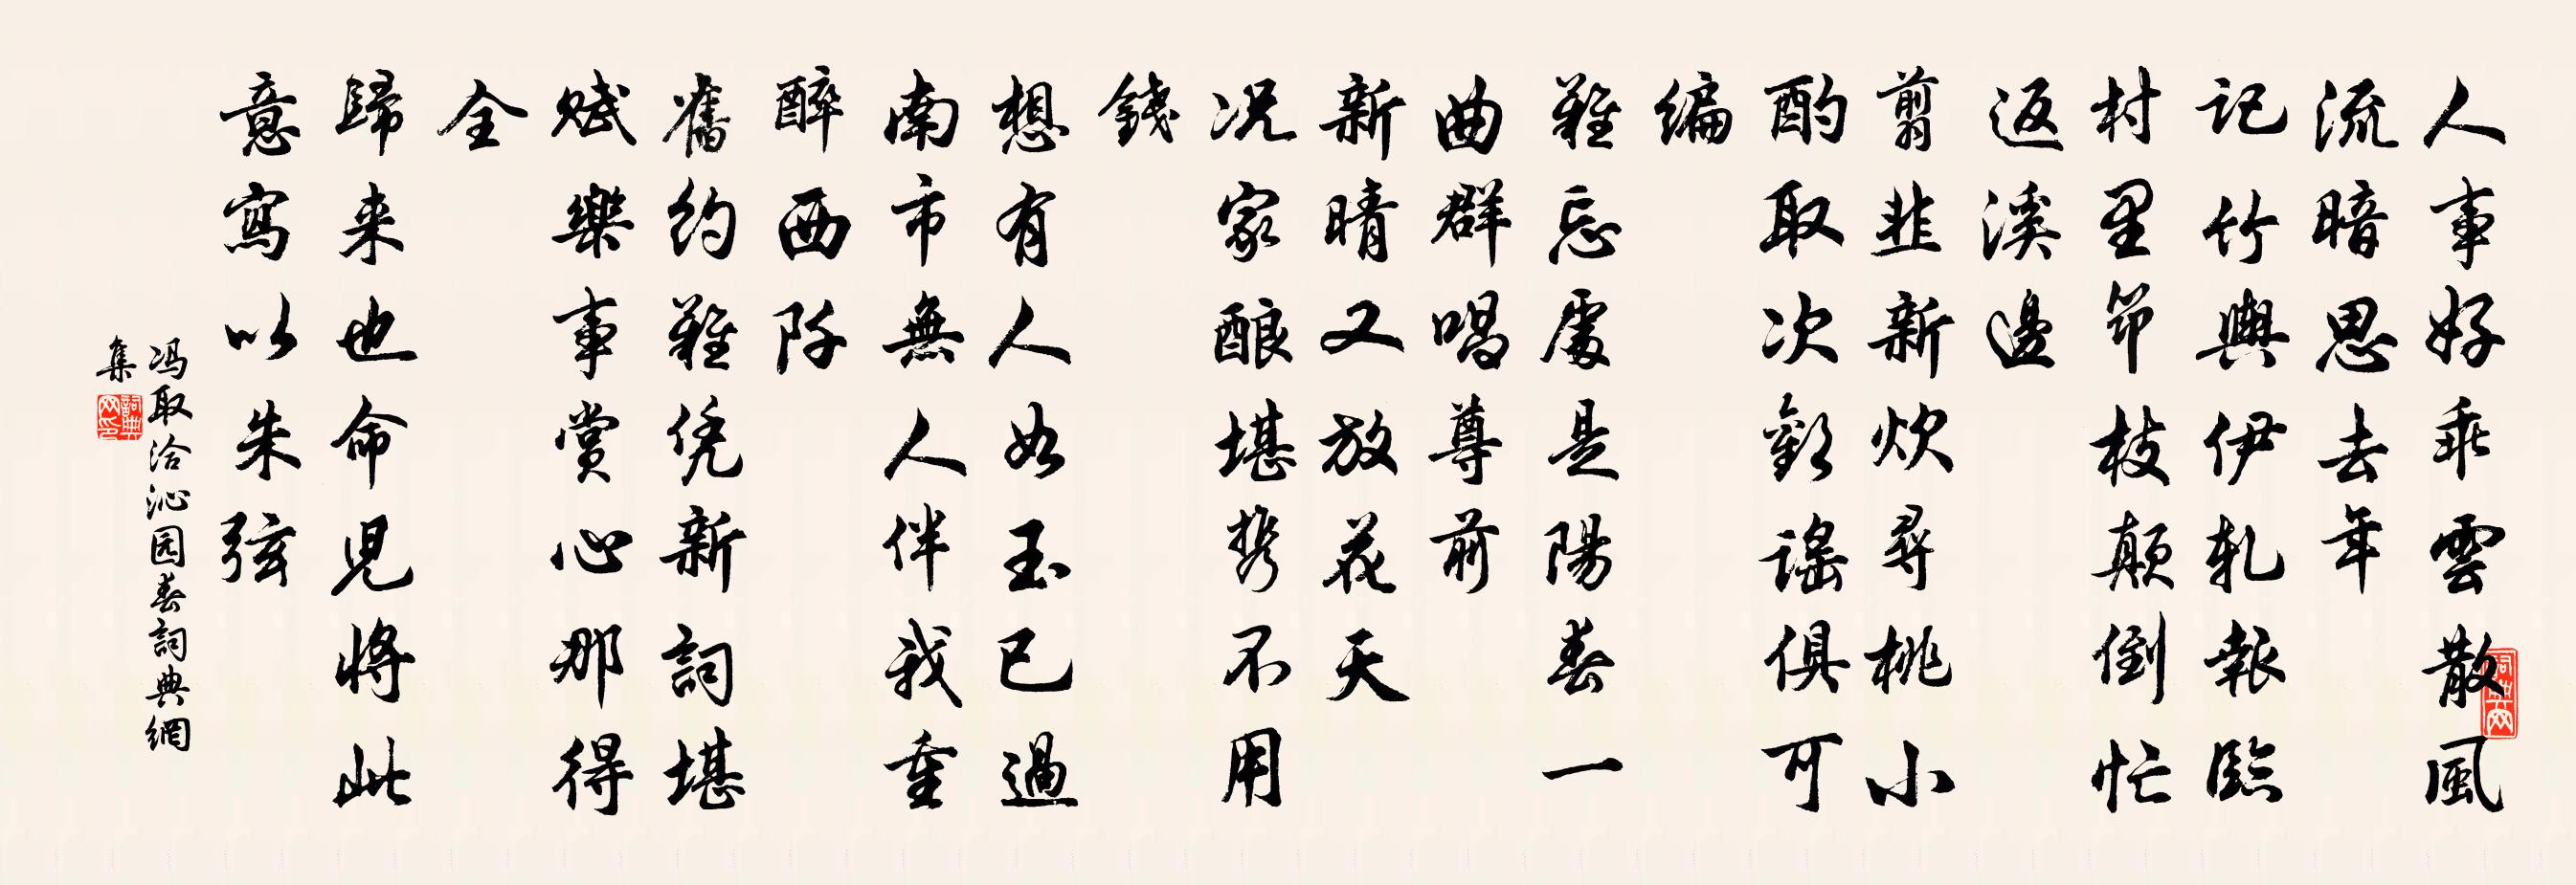 人事好乖雲散風
流暗思去年
記竹輿伊軋報臨
村里笻枝顛倒忙
返溪邊
剪韭新炊尋桃小
酌取次歡謡俱可
編
難忘處是陽春一
曲群唱尊前
新晴又放花天
况家酿堪携不用
錢
想有人如玉已過
南市無人伴我重
醉西阡
舊約難凭新詞堪
賦樂事賞心那得
全
歸来也命児将此
意寫以朱弦
冯取洽沁园春詞典網
集
詞典网
詞典网印